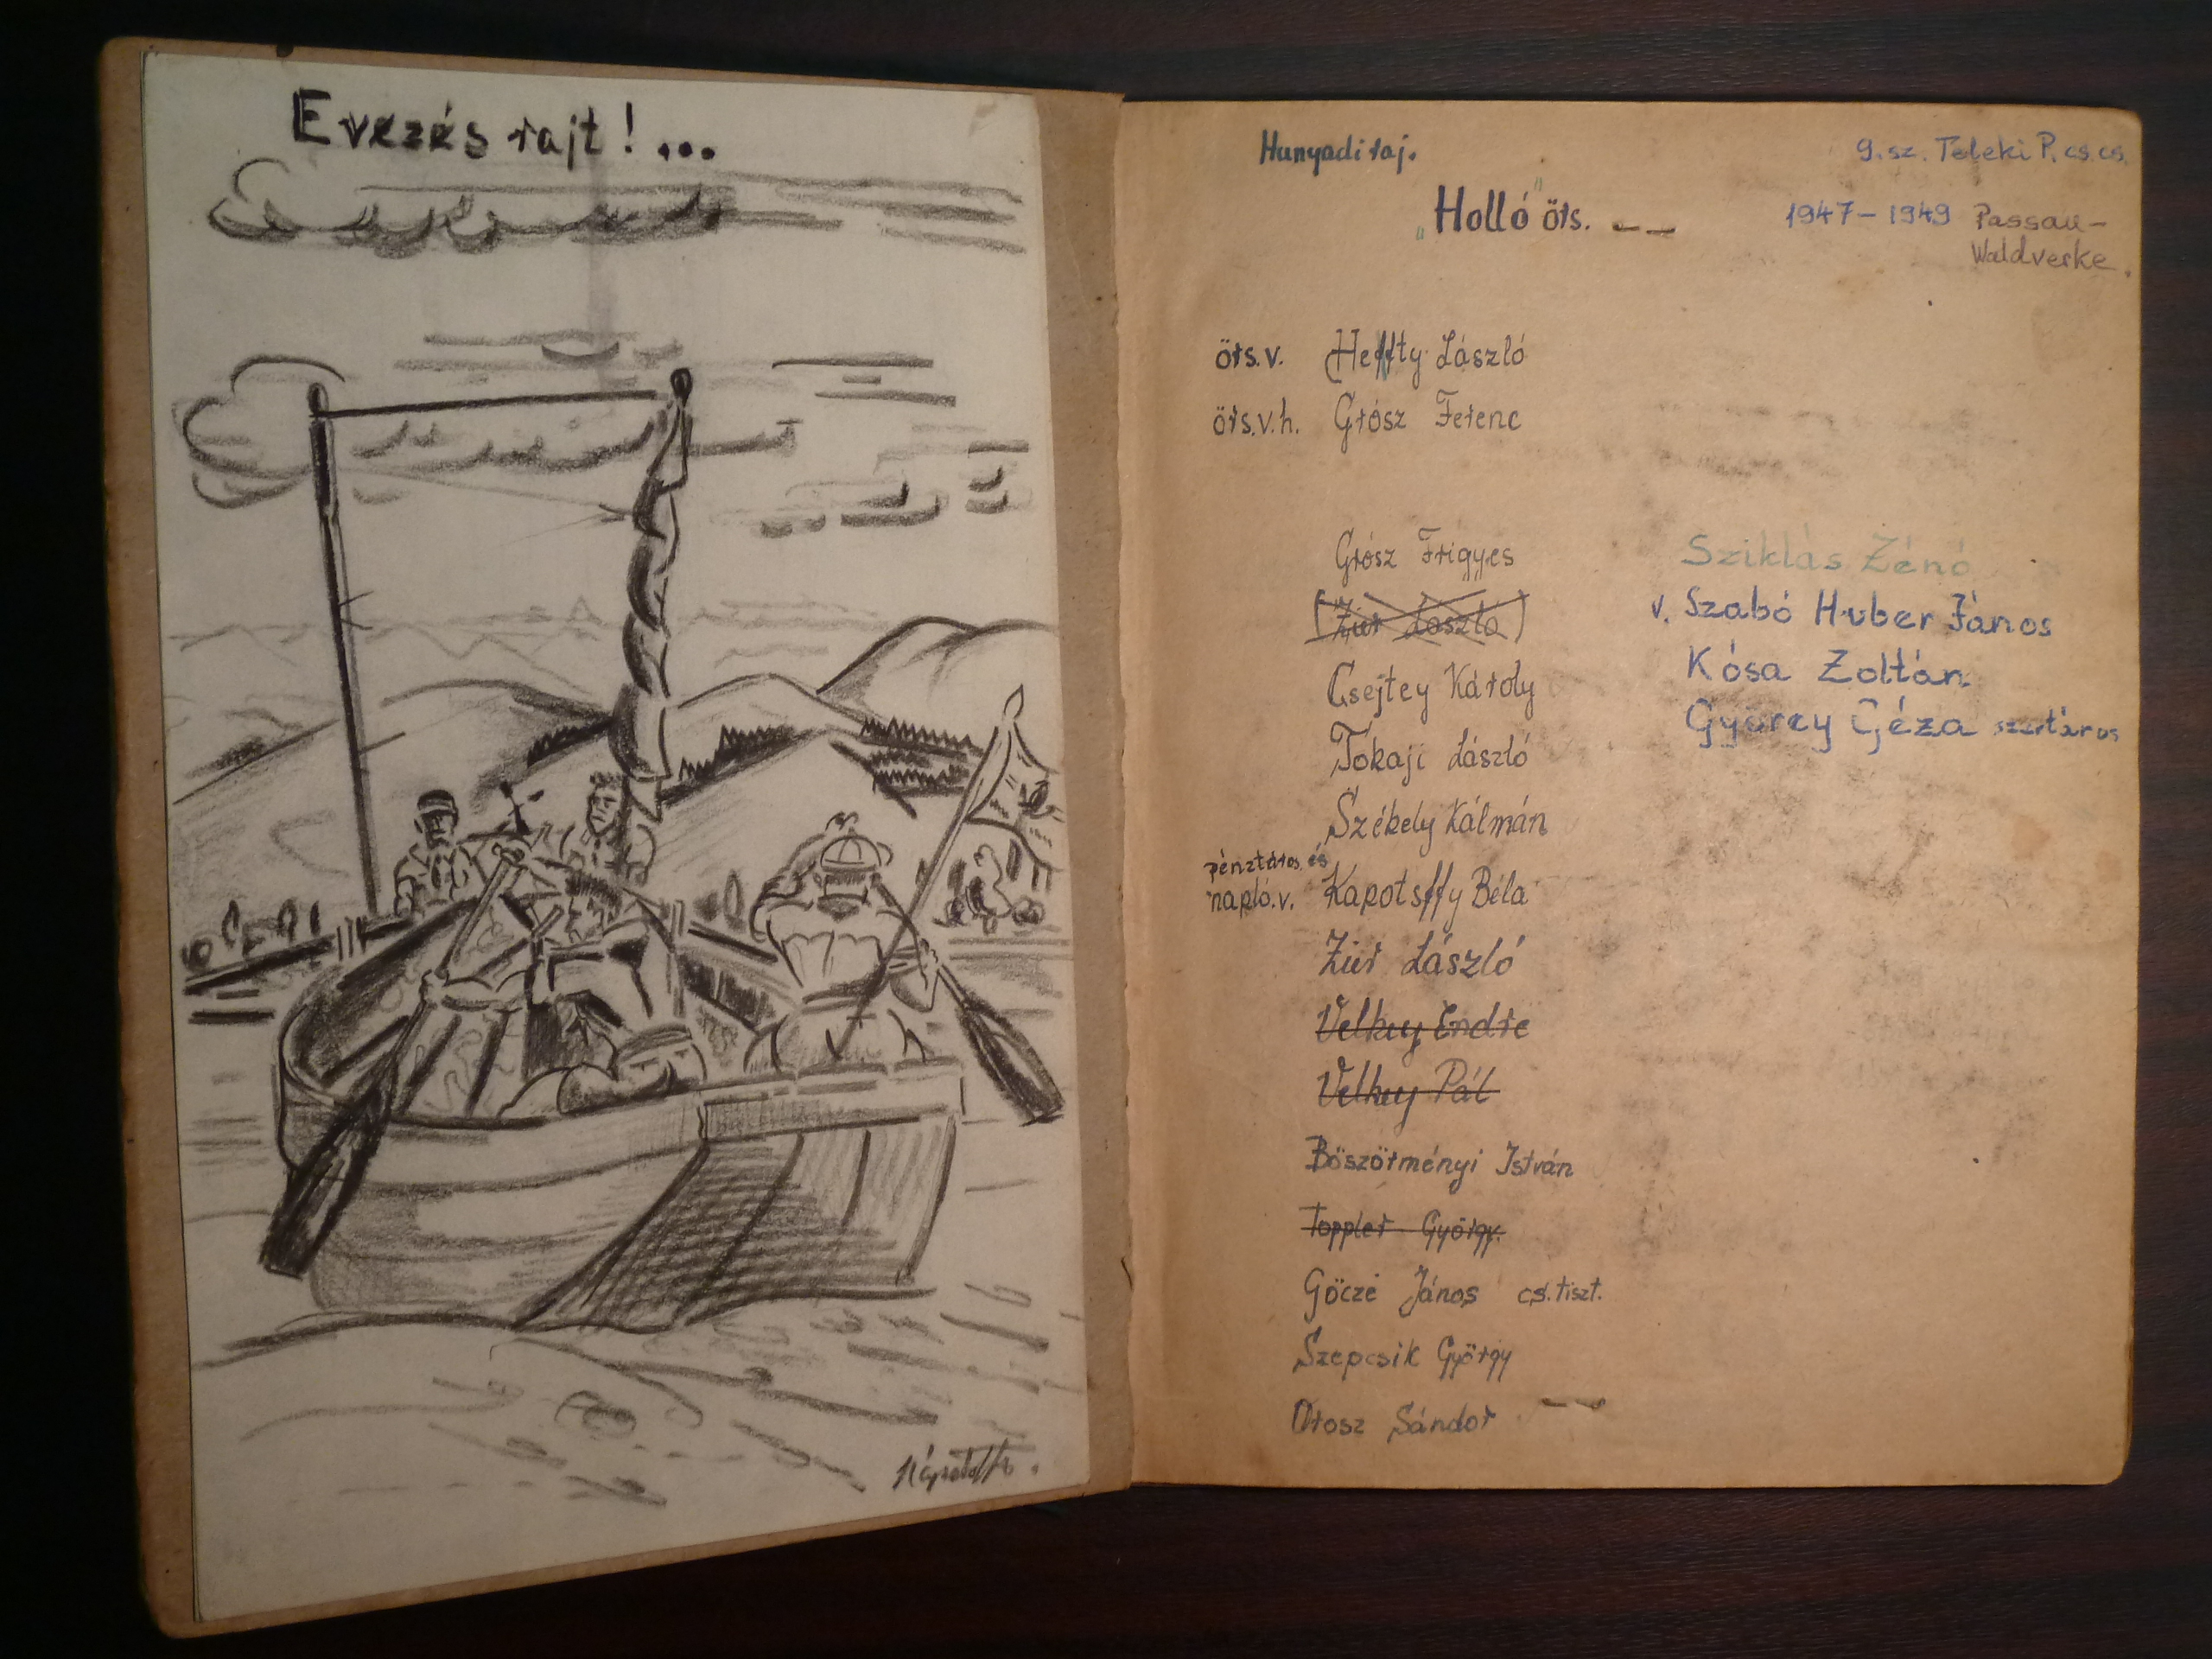 Evezés rajt!...
Hunyadi raj.
9. sz. Teleki P. cs. cs.
"Holló" örs.
1947 – 1949 Passau –
Waldverke.
örs.v. Heffty László
örs.v.h. Grósz Ferenc
Grósz Frigyes
(Zier László)
Csejtey Károly
Tokaji László
Székely Kálmán
pénztáros és
napló.v. Kapotsffy Béla
Zier László
Velkey Endre
Velkey Pál
Böszörményi István
Toppler György.
Göcze János cs. tiszt.
Szepcsik György
Orosz Sándor
Sziklás Zénó
v. Szabó Huber János
Kósa Zoltán
Györey Géza szertáros